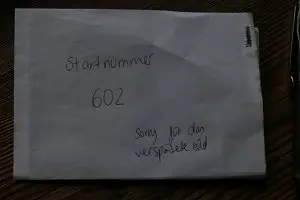 Startnummer
602
Sorry für das
verspätete Bild